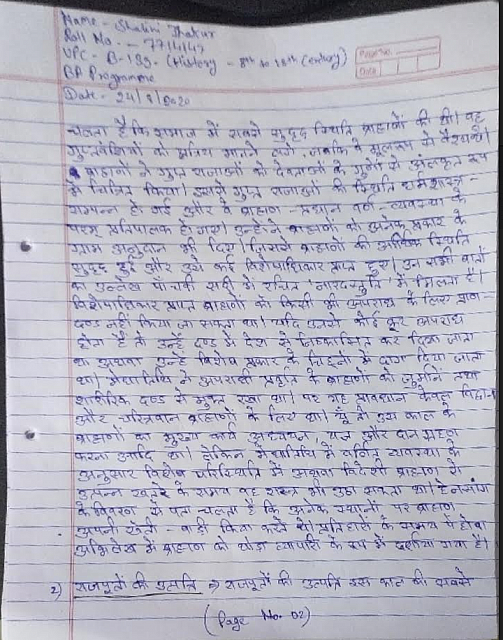 Name - Shalini Thakur
Roll No. - 7714147
UPC - B-139 - (History - 8th to 18th Century)
BA Programme
Date - 24/8/2020
Page No.
Date
चलता है कि समाज में सबसे सुदृढ़ स्थिति ब्राह्मणों की थी। वह
गुप्तवंशियों को क्षत्रिय मानने लगे, जबकि वे मूलरूप से वैश्य थे।
ब्राह्मणों ने गुप्त राजाओं को देवताओं के गुणों से अलंकृत रूप
में चित्रित किया। इससे गुप्त राजाओं की स्थिति धर्मशास्त्र-
सम्पन्न हो गई और वे ब्राह्मण-प्रधान वर्ण-व्यवस्था के
परम् प्रतिपालक हो गए। उन्होंने ब्राह्मणों को अनेक प्रकार के
ग्राम अनुदान भी दिए। जिससे ब्राह्मणों की आर्थिक स्थिति
सुदृढ़ हुई और उन्हें कई विशेषाधिकार प्राप्त हुए। उन सभी बातों
का उल्लेख पाँचवी सदी में रचित 'नारदस्मृति' में मिलता है।
विशेषाधिकार प्राप्त ब्राह्मणों को किसी भी अपराध के लिए प्राण-
दण्ड नहीं दिया जा सकता था। यदि उनसे कोई क्रूर अपराध
होता है तो उन्हें दण्ड में देश से निष्कासित कर दिया जाता
था अथवा उन्हें विशेष प्रकार के चिह्नों से दाग दिया जाता
था। मेधातिथि ने अपराधी प्रवृत्ति के ब्राह्मणों को जुर्माने तथा
शारीरिक दण्ड से मुक्त रखा था। पर यह प्रावधान केवल विद्वान
और चरित्रवान ब्राह्मणों के लिए था। यूँ तो उस काल के
ब्राह्मणों का मुख्य कार्य अध्ययन, यज्ञ और दान ग्रहण
करना आदि था। लेकिन मेधातिथि में वर्णित व्यवस्था के
अनुसार विशेष परिस्थिति में अथवा विदेशी ब्राह्मण से
उत्पन्न खतरे के समय वह शस्त्र भी उठा सकता था। हेनसांग
के विवरण से पता चलता है कि अनेक स्थानों पर ब्राह्मण
अपनी खेती-बाड़ी किया करते थे। प्रतिहारों के समय में
अभिलेख में ब्राह्मण को घोड़ा व्यापारी के रूप में दर्शाया गया है।
2) राजपूतों की उत्पत्ति ⇒ राजपूतों की उत्पत्ति इस काल की सबसे
(Page No. 02)